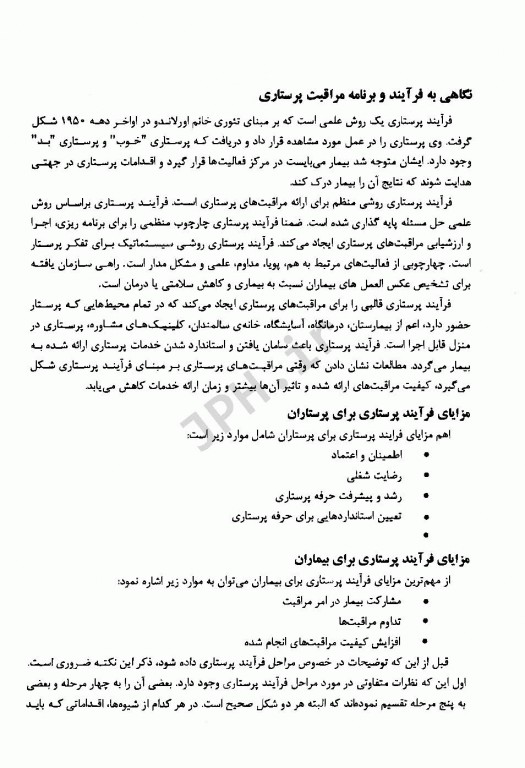 نگاهی به فرآیند و برنامه مراقبت پرستاری
فرآیند پرستاری یک روش علمی است که بر مبنای تئوری خانم اورلاندو در اواخر دهه ۱۹۵۰ شکل
گرفت. وی پرستاری را در عمل مورد مشاهده قرار داد و دریافت که پرستاری "خوب" و پرستاری "بد"
وجود دارد. ایشان متوجه شد بیمار می‌بایست در مرکز فعالیت‌ها قرار گیرد و اقدامات پرستاری در جهتی
هدایت شوند که نتایج آن را بیمار درک کند.
فرآیند پرستاری روشی منظم برای ارائه مراقبت‌های پرستاری است. فرآیند پرستاری براساس روش
علمی حل مسئله پایه گذاری شده است. ضمنا فرآیند پرستاری چارچوب منظمی را برای برنامه ریزی، اجرا
و ارزشیابی مراقبت‌های پرستاری ایجاد می‌کند. فرآیند پرستاری روشی سیستماتیک برای تفکر پرستار
است. چهارچوبی از فعالیت‌های مرتبط به هم، پویا، مداوم، علمی و مشکل مدار است. راهی سازمان یافته
برای تشخیص عکس العمل های بیماران نسبت به بیماری و کاهش سلامتی یا درمان است.
فرآیند پرستاری قالبی را برای مراقبت‌های پرستاری ایجاد می‌کند که در تمام محیط‌هایی که پرستار
حضور دارد، اعم از بیمارستان، درمانگاه، آسایشگاه، خانه‌ی سالمندان، کلینیک‌های مشاوره، پرستاری در
منزل قابل اجرا است. فرآیند پرستاری باعث سامان یافتن و استاندارد شدن خدمات پرستاری ارائه شده به
بیمار می‌گردد. مطالعات نشان دادن که وقتی مراقبت‌های پرستاری بر مبنای فرآیند پرستاری شکل
می‌گیرد، کیفیت مراقبت‌های ارائه شده و تاثیر آن‌ها بیشتر و زمان ارائه خدمات کاهش می‌یابد.
مزایای فرآیند پرستاری برای پرستاران
اهم مزایای فرایند پرستاری برای پرستاران شامل موارد زیر است:
• اطمینان و اعتماد
• رضایت شغلی
• رشد و پیشرفت حرفه پرستاری
• تعیین استانداردهایی برای حرفه پرستاری
•
مزایای فرآیند پرستاری برای بیماران
از مهم‌ترین مزایای فرآیند پرستاری برای بیماران می‌توان به موارد زیر اشاره نمود:
• مشارکت بیمار در امر مراقبت
• تداوم مراقبت‌ها
• افزایش کیفیت مراقبت‌های انجام شده
قبل از این که توضیحات در خصوص مراحل فرآیند پرستاری داده شود، ذکر این نکته ضروری است.
اول این که نظرات متفاوتی در مورد مراحل فرآیند پرستاری وجود دارد. بعضی آن را به چهار مرحله و بعضی
به پنج مرحله تقسیم نموده‌اند که البته هر دو شکل صحیح است. در هر کدام از شیوه‌ها، اقداماتی که باید
JPH.ir